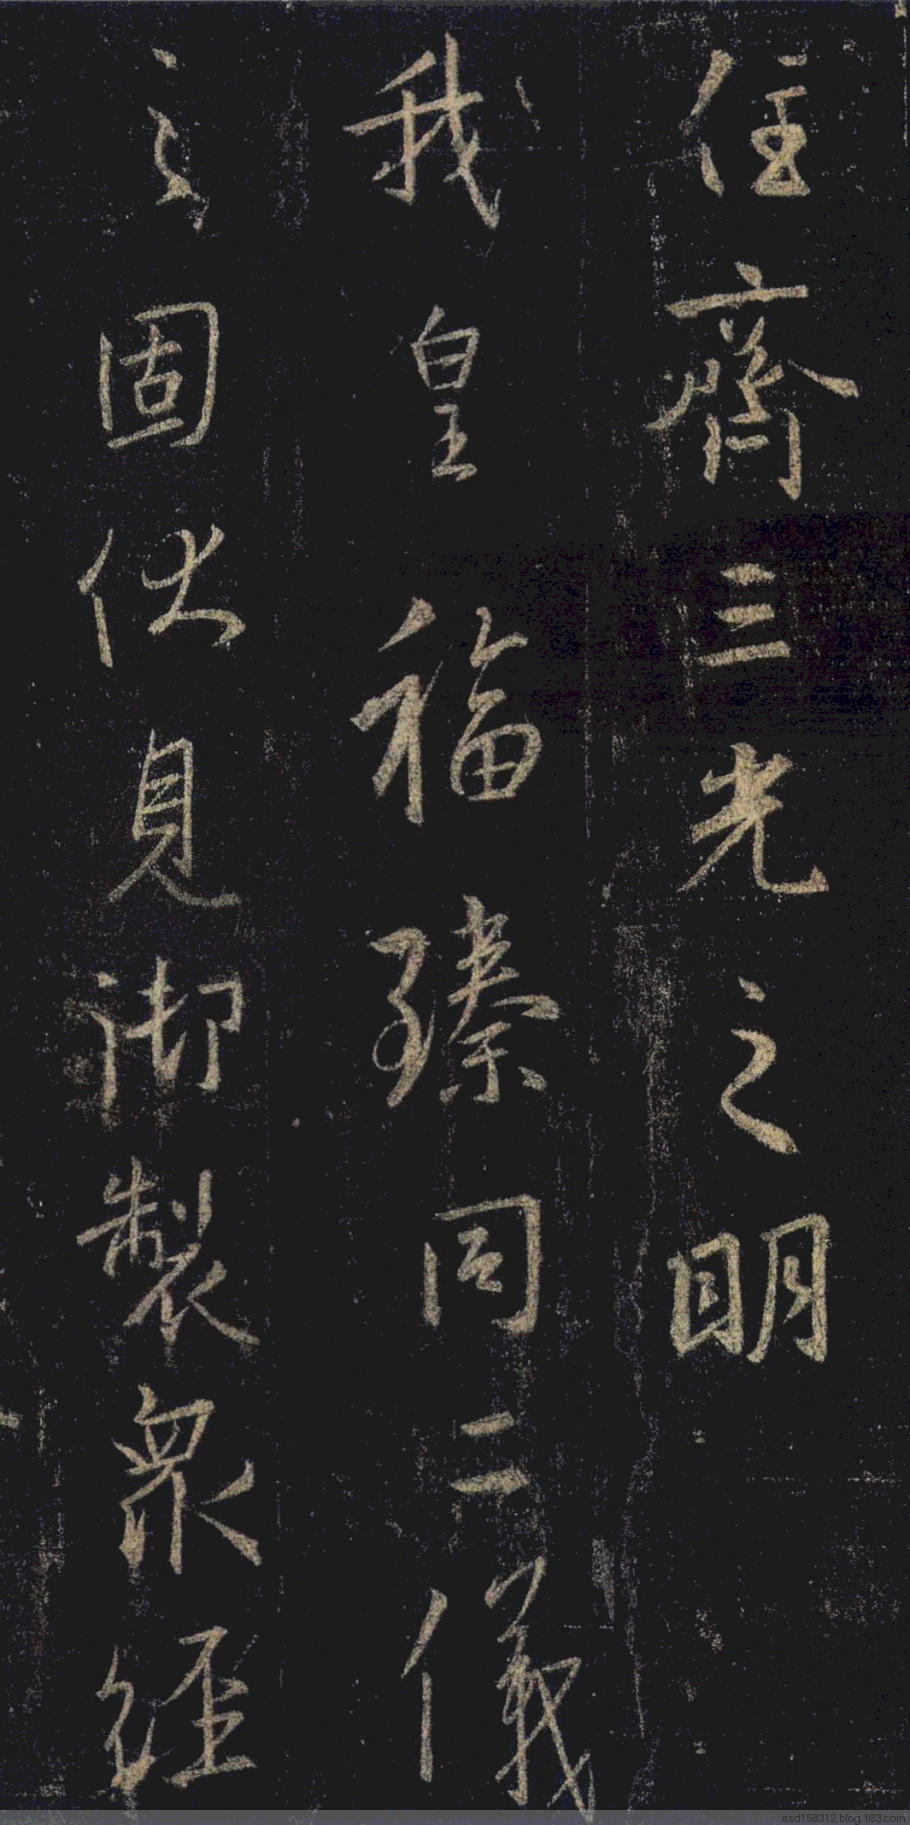 任齊三光之明
我皇福臻同二儀
之固伏見御製眾經
asd158312.blog.163.com